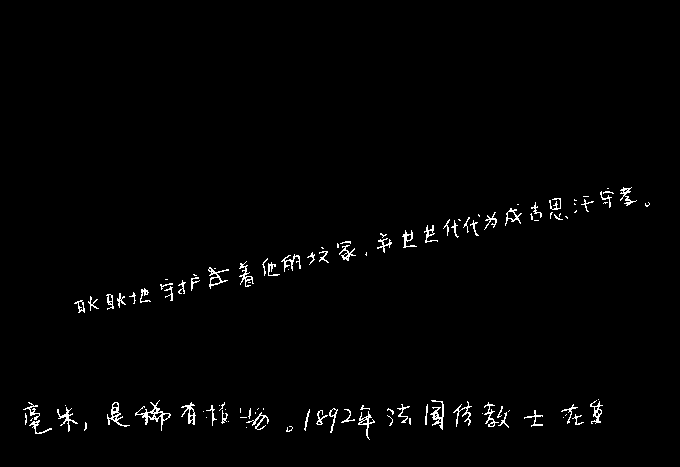 耿耿地守护着他的坟冢,并世世代代为成吉思汗守孝。
毫米,是稀有植物。1892年法国传教士在